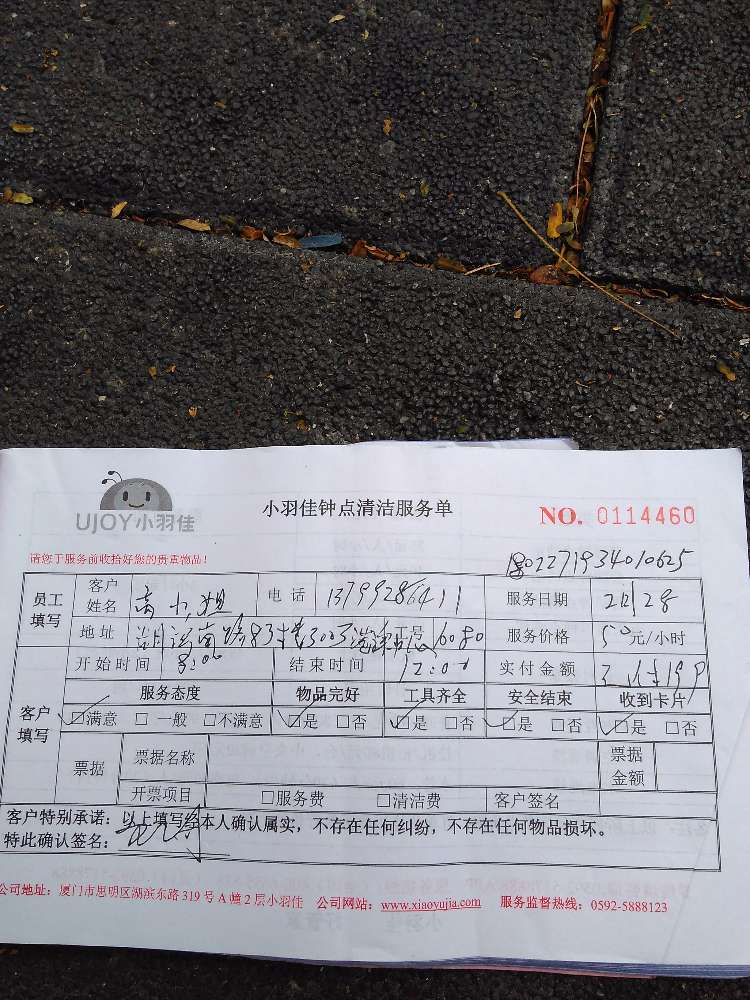 UJOY小羽佳
小羽佳钟点清洁服务单
NO. 0114460
请您于服务前收拾好您的贵重物品!
1802271934010625
员工填写 客户姓名 高小姐 电话 13799286411 服务日期 2月28
地址 湖滨南路83 服务价格 50元/小时
开始时间 8:00 结束时间 12:00 实付金额
客户填写 服务态度 物品完好 工具齐全 安全结束 收到卡片
☑满意 □一般 □不满意 ☑是 □否 ☑是 □否 ☑是 □否 ☑是 □否
票据 票据名称 票据金额
开票项目 □服务费 □清洁费 客户签名
客户特别承诺：以上填写经本人确认属实，不存在任何纠纷，不存在任何物品损坏。
特此确认签名：
公司地址：厦门市思明区湖滨东路319号A幢2层小羽佳 公司网站：www.xiaoyujia.com 服务监督热线：0592-5888123